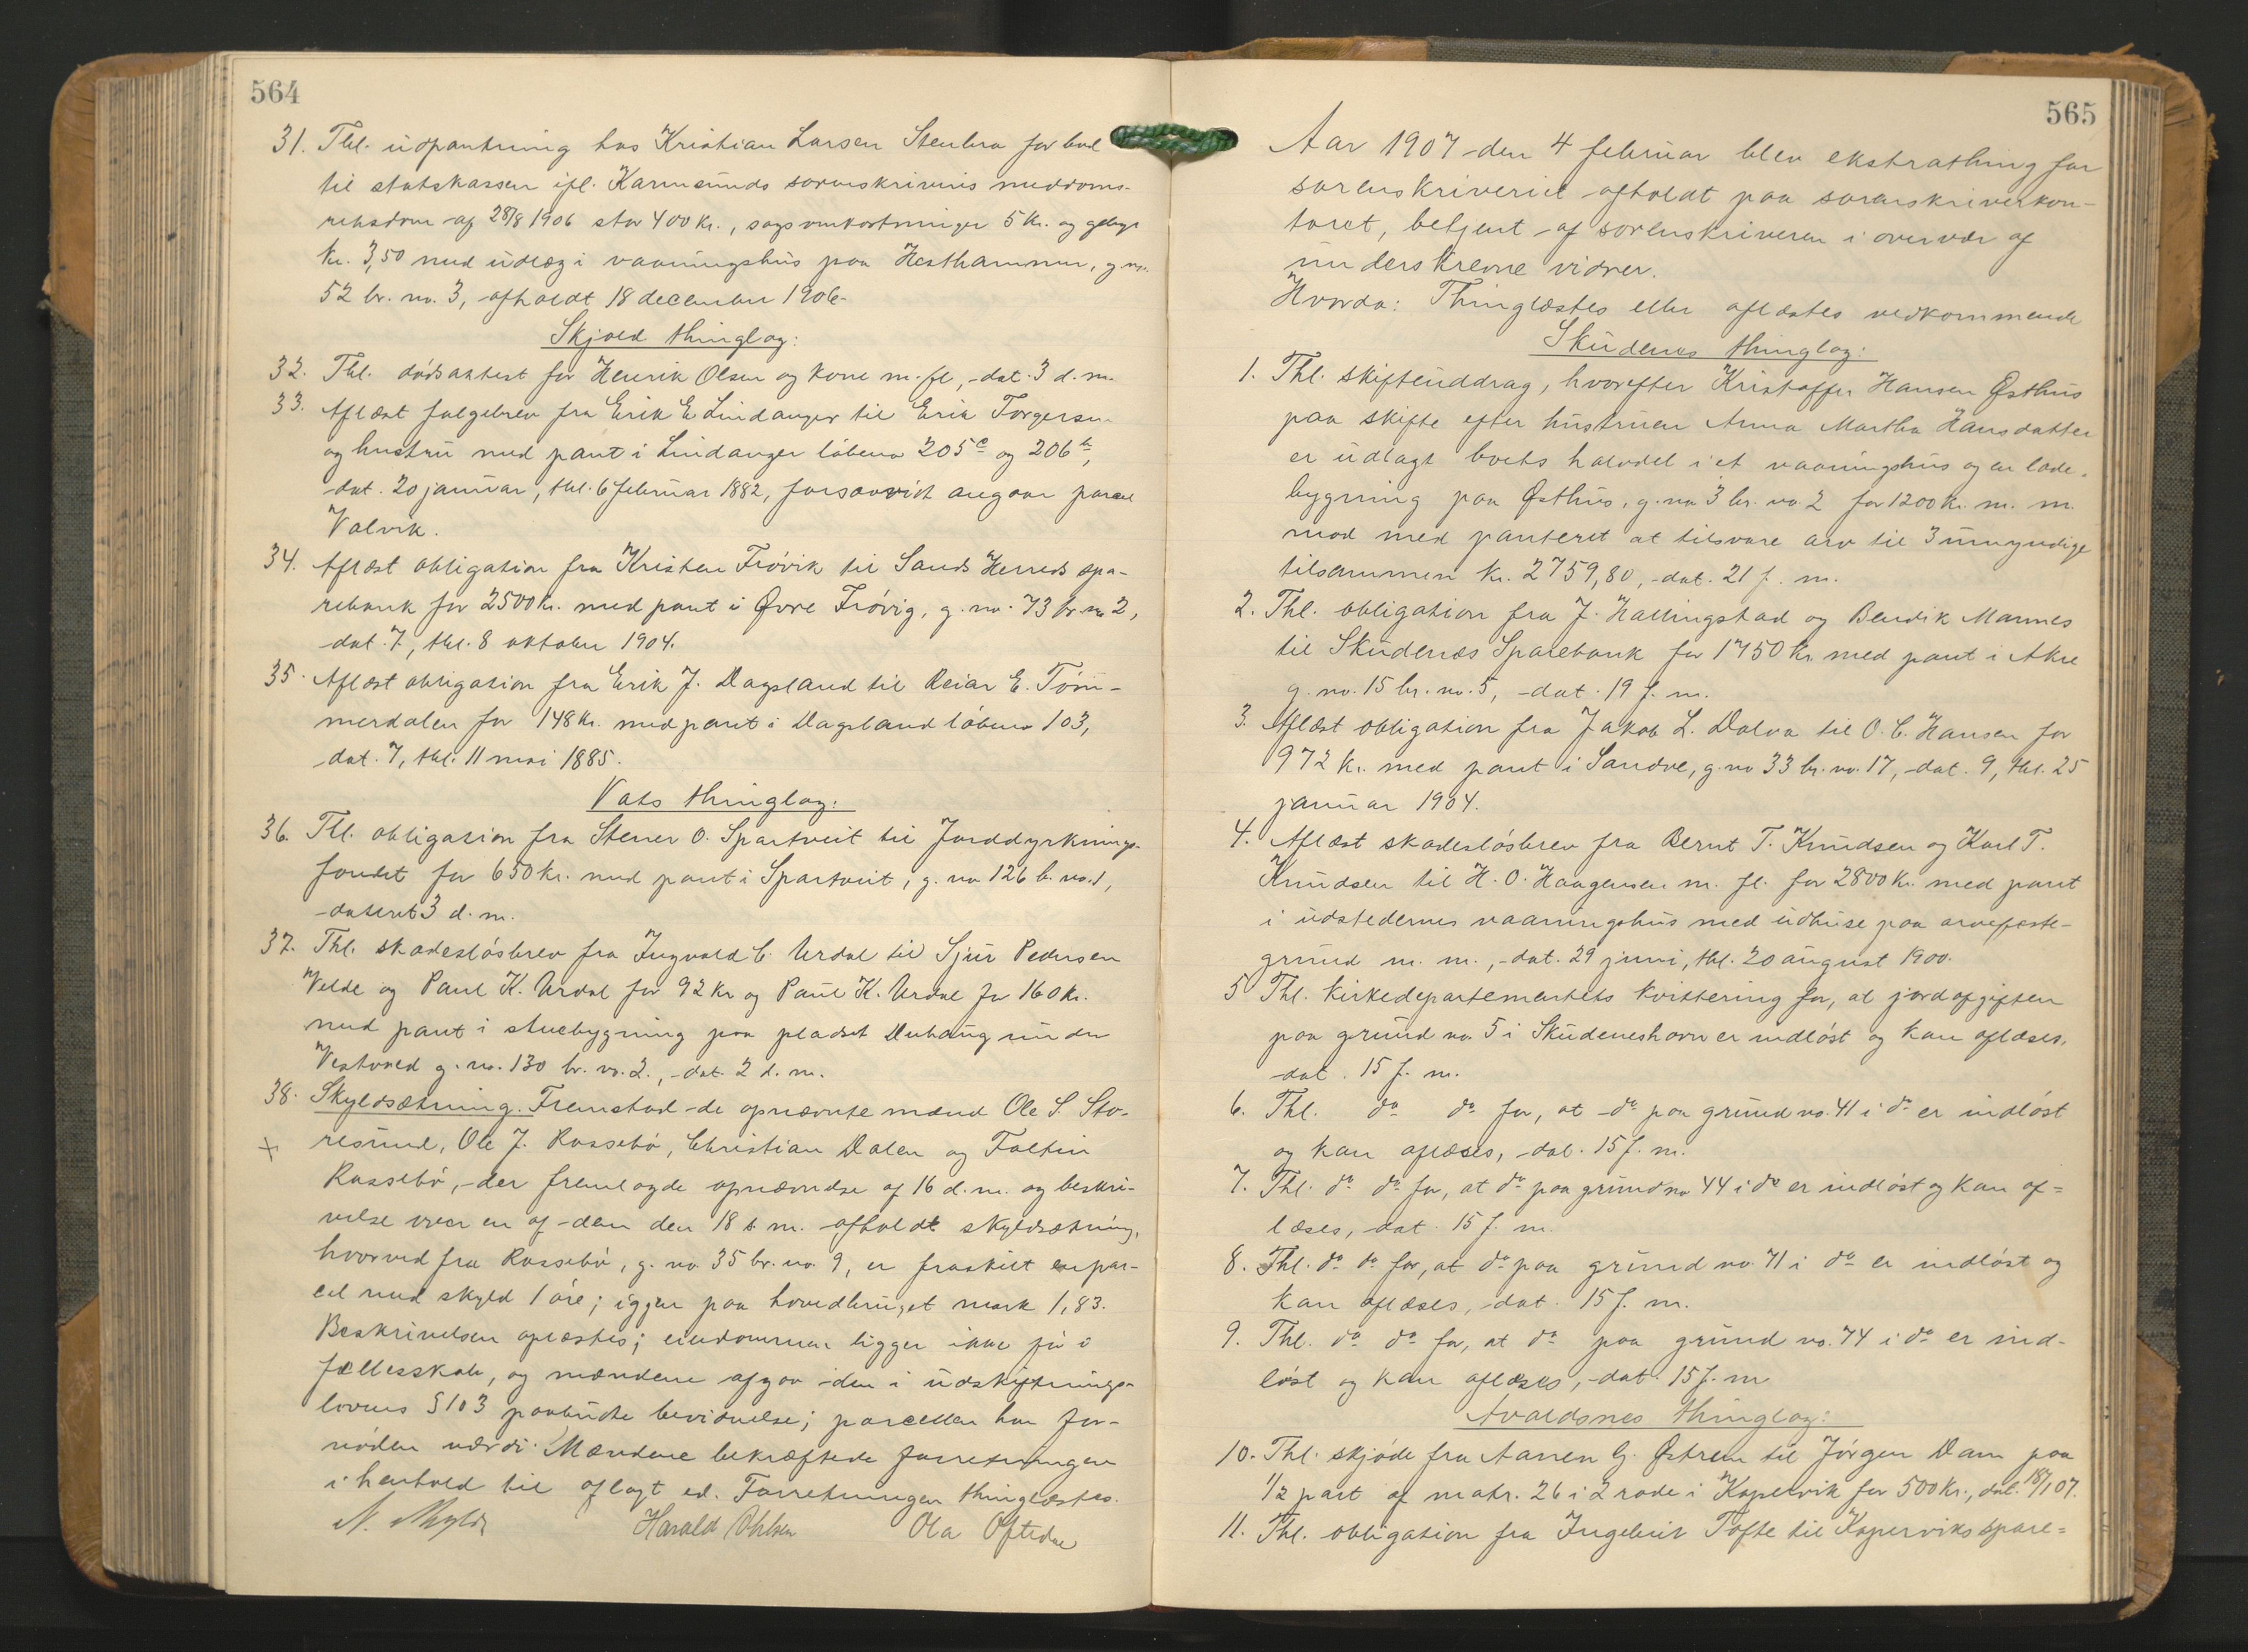 564
31. Thl. udpantning hos Kristian Larsen Stenbru for bod
til statskassen ifl. Karmsunds sorenskriveris meddoms-
retsdom af 28/8 1906 stor 400 kr., sagsomkostninger 5 kr. og gebyr
kr. 3,50 med udlæg i vaaningshus paa Hesthammer, g. no.
52 br. no. 3, afholdt 18 december 1906.
Skjold thinglag:
32. Thl. dødsattest for Henrik Olsen og kone m. fl., dat. 3 d. m.
33. Aflæst følgebrev fra Erik E. Lindanger til Erik Torgersen
og hustru med pant i Lindanger løbeno 205c og 206b,
dat. 20 januar, thl. 6 februar 1882, forsaavidt angaar parcel
Valvik.
34. Aflæst obligation fra Kristen Frøvik til Sands Herreds spa-
rebank for 2500 kr. med pant i Øvre Frøvig, g. no. 73 br. no 2,
dat. 7, thl. 8 oktober 1904.
35. Aflæst obligation fra Erik J. Dagsland til Reiar E. Tøm-
merdalen for 148 kr. med pant i Dagsland løbeno 103,
dat. 7, thl. 11 mai 1885.
Vats thinglag:
36. Thl. obligation fra Stener O. Spartveit til Jorddyrknings-
fondet for 650 kr. med pant i Spartveit, g. no 126 b. no. 1,
dateret 3 d. m.
37. Thl. skadesløsbrev fra Ingvald C. Urdal til Sjur Pedersen
Velde og Paul K. Urdal for 92 kr og Paul K. Urdal for 160 kr.
med pant i stuebygning paa pladset Duhaug under
Vestvved g. no. 130 br. no. 2., dat. 2 d. m.
38. Skyldsætning. Fremstod de opnævnte mænd Ole S. Sto-
+ resund, Ole J. Rossebø, Christian Dalen og Faltin
Rossebø, der fremlagde opnævnelse af 16 d. m. og beskri-
velse over en af dem den 18 s. m. afholdt skyldsætning,
hvorved fra Rossebø, g. no. 35 br. no. 9, er fraskilt en par-
cel med skyld 1 øre; igjen paa hovedbruget mark 1,83.
Beskrivelsen oplæstes; eiendommen ligger ikke før i
fællesskab, og mændene afgav den i udskiftnings-
lovens § 103 paabudte bevidnelse; parcellen har for-
nøden værdi. Mændene bekræftede forretningen
i henhold til aflagt ed. Forretningen thinglæstes.
Harald Ohlsen Ola Oftedal
565
Aar 1907 den 4 februar blev ekstrathing for
sorenskriveriet afholdt paa sorenskriverkon-
toret, betjent af sorenskriveren i overvær af
underskrevne vidner.
Hvorda: Thinglæstes eller aflæstes vedkommende
Skudenes thinglag:
1. Thl. skifteuddrag, hvorefter Kristoffer Hansen Østhus
paa skifte efter hustruen Anna Martha Hansdatter
er udlagt boets halvdel i et vaaningshus og en lade-
bygning paa Østhus, g. no 3 br. no 2 for 1200 kr. m. m.
mod med panteret at tilsvare arv til 3 umyndige
tilsammen kr. 2759,80, dat. 21 f. m.
2. Thl. obligation fra J. Hallingstad og Bendik Mannes
til Skudenæs Sparebank for 1750 kr. med pant i Akre
g. no. 15 br. no. 5, dat. 19 f. m.
3. Aflæst obligation fra Jakob L. Dalva til O. C. Hansen for
972 kr. med pant i Sandve, g. no 33 br. no. 17, dat. 9, thl. 25
januar 1904.
4. Aflæst skadesløsbrev fra Bernt T. Knudsen og Karl T.
Knudsen til H. O. Haagensen m. fl. for 2800 kr. med pant
i udstedernes vaaningshus med udhuse paa arvefæste-
grund m. m., dat. 29 juni, thl. 20 august 1900.
5 Thl. kirkedepartementets kvittering for, at jordafgiften
paa grund no. 5 i Skudeneshavn er indløst og kan aflæses,
dat. 15 f. m.
6. Thl. do do for, at do paa grund no. 41 i do er indløst
og kan aflæses, dat. 15 f. m.
7. Thl. do do for, at do paa grund no 44 i do er indløst og kan af=
læses, dat. 15 f. m.
8. Thl. do do for, at do paa grund no. 71 i do er indløst og
kan aflæses, dat. 15 f. m.
9. Thl. do do for, at do paa grund no. 74 i do er ind-
løst og kan aflæses, dat. 15 f. m
Avaldsnes thinglag:
10. Thl. skjøde fra Aanen G. Østrem til Jørgen Dam paa
1/2 part af matr. 26 i 2 rode i Kopervik for 500 kr., dat. 18/1 07.
11. Thl. obligation fra Ingebrit Tofte til Koperviks spare=